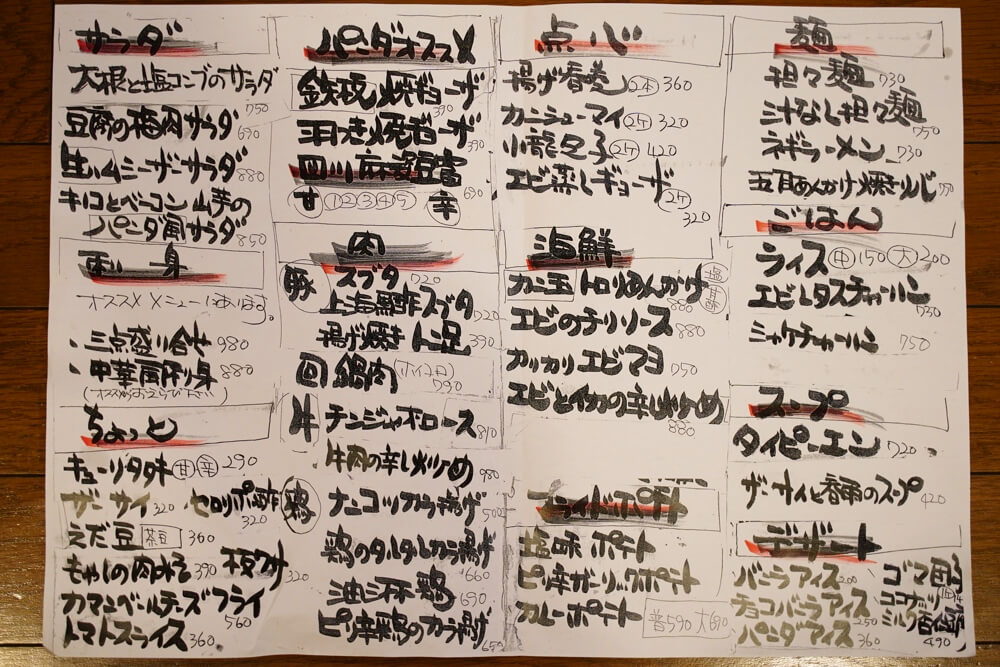 サラダ
大根と塩コンブのサラダ
750
豆腐の梅肉サラダ
690
生ハムシーザーサラダ
880
キノコとベーコン山芋の
パンダ風サラダ
850
刺し身
オススメメニューにあります。
・三点盛り合せ 980
・中華風刺身 880
ちょっと
キューリタタキ 甘 辛 290
ザーサイ 320 セロリポン酢
320
えだ豆 茶豆 360
もやしの肉みそ 390 板ワサ
320
カマンベールチーズフライ
560
トマトスライス 360
パンダオススメ
鉄板焼ギョーザ
390
羽つき焼ギョーザ
390
四川麻婆豆腐
690
甘 1 2 3 4 5 辛
肉
豚 スブタ 720
上海黒酢スブタ
720
揚げ焼き トン足 330
回鍋肉 (ホイコーロ)
790
牛 チンジャオロース
810
牛肉の辛し炒め 980
鶏 ナンコツカラ揚げ
500
鶏のタルタルカラ揚げ
660
油淋鶏 690
ピリ辛鶏のカラ揚げ
650
点心
揚げ春巻 2本 360
カニシューマイ 2ケ 320
小龍包子 2ケ 420
エビ蒸しギョーザ
2ケ
320
海鮮
カニ玉 トロリあんかけ 塩
880
エビのチリソース
880
カリカリエビマヨ
750
エビとイカの辛し炒め
880
フライドポテト
塩味ポテト
ピリ辛ガーリックポテト
カレーポテト
普590 大690
麺
担々麺 730
汁なし担々麺
750
ネギラーメン 730
五目あんかけ焼きそば 750
ごはん
ライス 中 150 大 200
エビレタスチャーハン
730
シャケチャーハン 750
スープ
タイピーエン 720
ザーサイと春雨のスープ
420
デザート
バニラアイス 200
チョコバニラアイス
250
パンダアイス
360
ゴマ団子
ココナッツ
ミルク
490